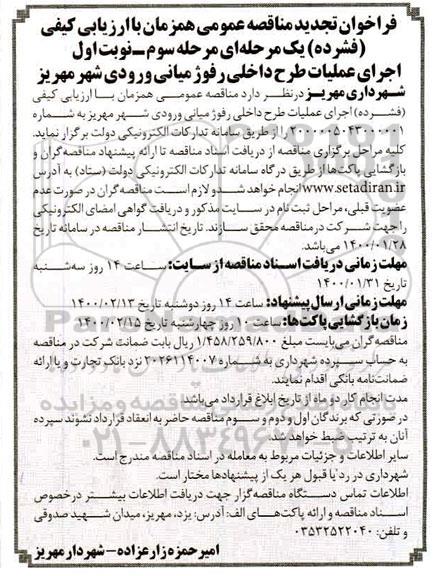 فراخوان تجدید مناقصه عمومی همزمان با ارزیابی کیفی
(فشرده) یک مرحله‌ای مرحله سوم ـ نوبت اول
اجرای عملیات طرح داخلی رفوژ میانی ورودی شهر مهریز
شهرداری مهریز درنظر دارد مناقصه عمومی همزمان با ارزیابی کیفی
(فشرده) اجرای عملیات طرح داخلی رفوژ میانی ورودی شهر مهریز به شماره
را از طریق سامانه تدارکات الکترونیکی دولت برگزار نماید.
کلیه مراحل برگزاری مناقصه از دریافت اسناد مناقصه تا ارائه پیشنهاد مناقصه‌گران و
بازگشایی پاکت‌ها از طریق درگاه سامانه تدارکات الکترونیکی دولت (ستاد) به آدرس
www.setadiran.ir انجام خواهد شد و لازم است مناقصه‌گران در صورت عدم
عضویت قبلی، مراحل ثبت نام در سایت مذکور و دریافت گواهی امضای الکترونیکی
را جهت شرکت در مناقصه محقق سازند. تاریخ انتشار مناقصه در سامانه تاریخ
۱۴۰۰/۰۱/۲۸ می‌باشد.
مهلت زمانی دریافت اسناد مناقصه از سایت: ساعت ۱۴ روز سه‌شنبه
تاریخ ۱۴۰۰/۰۱/۳۱
مهلت زمانی ارسال پیشنهاد: ساعت ۱۴ روز دوشنبه تاریخ ۱۴۰۰/۰۲/۱۳
زمان بازگشایی پاکت‌ها: ساعت ۱۰ روز چهارشنبه تاریخ ۱۴۰۰/۰۲/۱۵
مناقصه‌گران می‌بایست مبلغ ۱/۴۵۸/۲۵۹/۸۰۰ ریال بابت ضمانت شرکت در مناقصه
به حساب سپرده شهرداری به شماره ۲۰۲۶۱۱۴۰۰۷ نزد بانک تجارت و یا ارائه
ضمانت‌نامه بانکی اقدام نمایند.
مدت انجام کار دو ماه از تاریخ ابلاغ قرارداد می‌باشد.
در صورتی که برندگان اول و دوم و سوم مناقصه حاضر به انعقاد قرارداد نشوند سپرده
آنان به ترتیب ضبط خواهد شد.
سایر اطلاعات و جزئیات مربوط به معامله در اسناد مناقصه مندرج است.
شهرداری در رد یا قبول هر یک از پیشنهادها مختار است.
اطلاعات تماس دستگاه مناقصه‌گزار جهت دریافت اطلاعات بیشتر درخصوص
اسناد مناقصه و ارائه پاکت‌های الف: آدرس: یزد، مهریز، میدان شهید صدوقی
و تلفن: ۰۳۵۳۲۵۲۲۰۴۰
امیر حمزه زارعزاده – شهردار مهریز